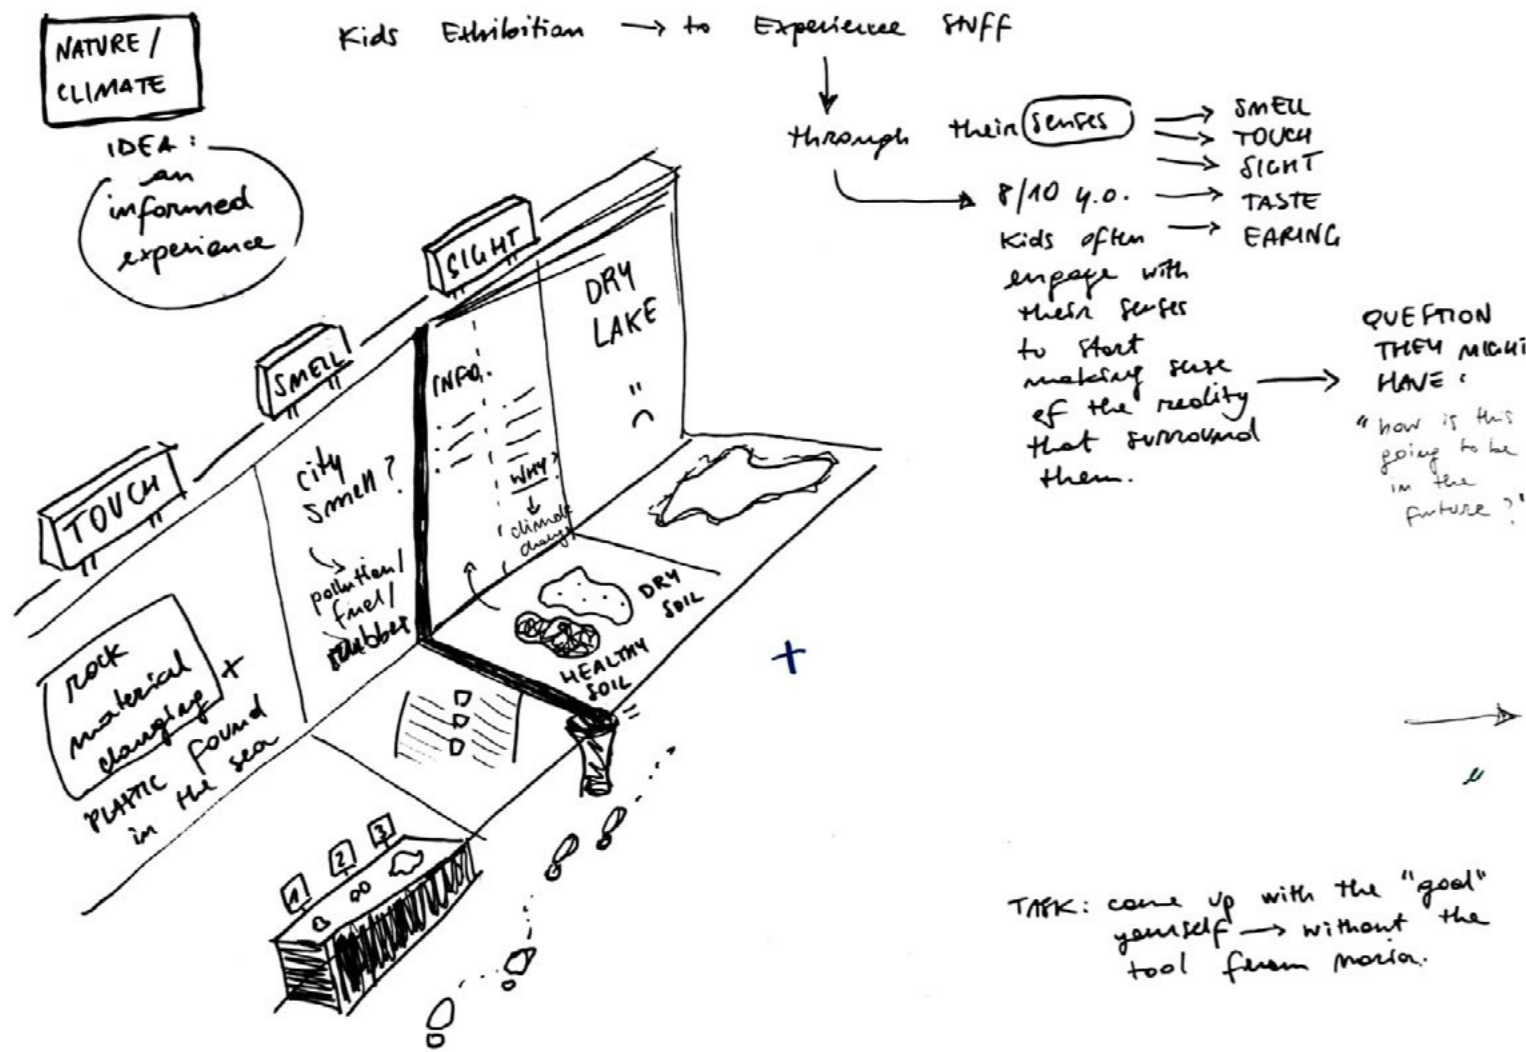 NATURE /
CLIMATE
IDEA :
an
informed
experience
Kids Exhibition → to Experience Stuff
through their senses
→ SMELL
→ TOUCH
→ SIGHT
→ TASTE
→ EARING
8/10 y.o.
Kids often
engage with
their senses
to start
making sense
of the reality
that surround
them.
QUESTION
THEY MIGHT
HAVE :
"how is this
going to be
in the
future ?"
SIGHT
SMELL
TOUCH
DRY
LAKE
INFO.
WHY?
climate
change
city
smell ?
pollution /
fuel /
rubber
rock
material
changing +
PLASTIC found
in the sea
DRY
SOIL
HEALTHY
SOIL
1 2 3
TASK : come up with the "goal"
yourself → without the
tool from Maria.